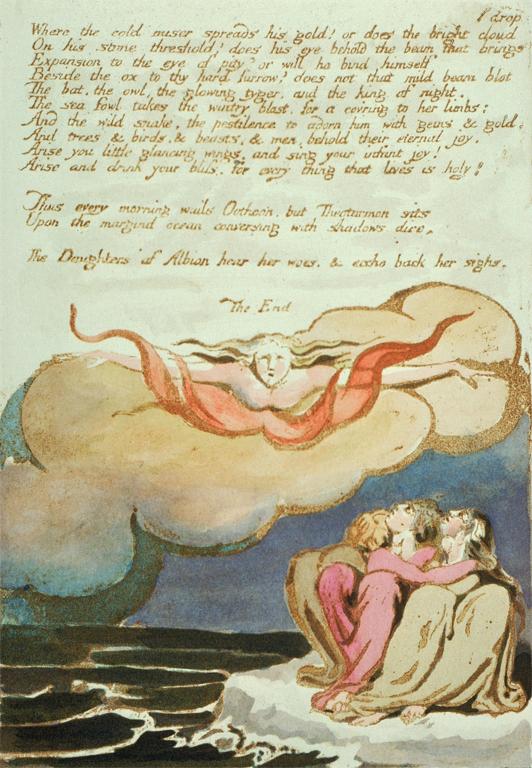 drop
Where the cold miser spreads his gold? or does the bright cloud
On his stone threshold? does his eye behold the beam that brings
Expansion to the eye of pity? or will he bind himself
Beside the ox to thy hard furrow? does not that mild beam blot
The bat, the owl, the glowing tyger, and the king of night.
The sea fowl takes the wintry blast, for a cov'ring to her limbs:
And the wild snake, the pestilence to adorn him with gems & gold.
And trees & birds. & beasts, & men, behold their eternal joy.
Arise you little glancing wings, and sing your infant joy!
Arise and drink your bliss, for every thing that lives is holy!
Thus every morning wails Oothoon, but Theotormon sits
Upon the margind ocean conversing with shadows dire,
The Daughters of Albion hear her woes. & eccho back her sighs.
The End